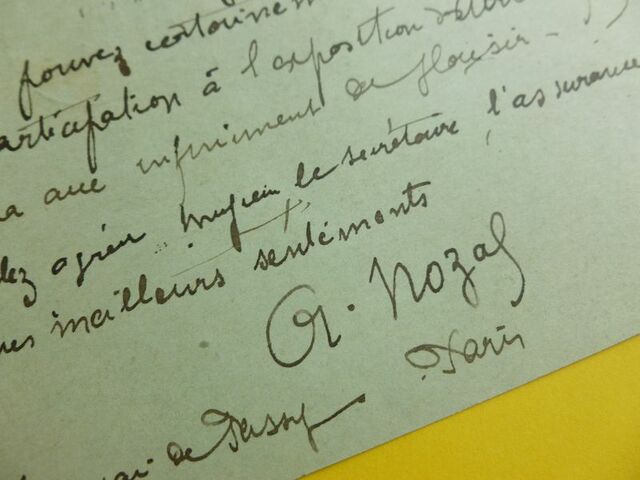 pouvez certainem
articipation à l'exposition d'
a avec infiniment de plaisir -
lez agréer Monsieur le secrétaire, l'assurance
mes meilleurs sentiments
A. Nozal
quai de Passy Paris